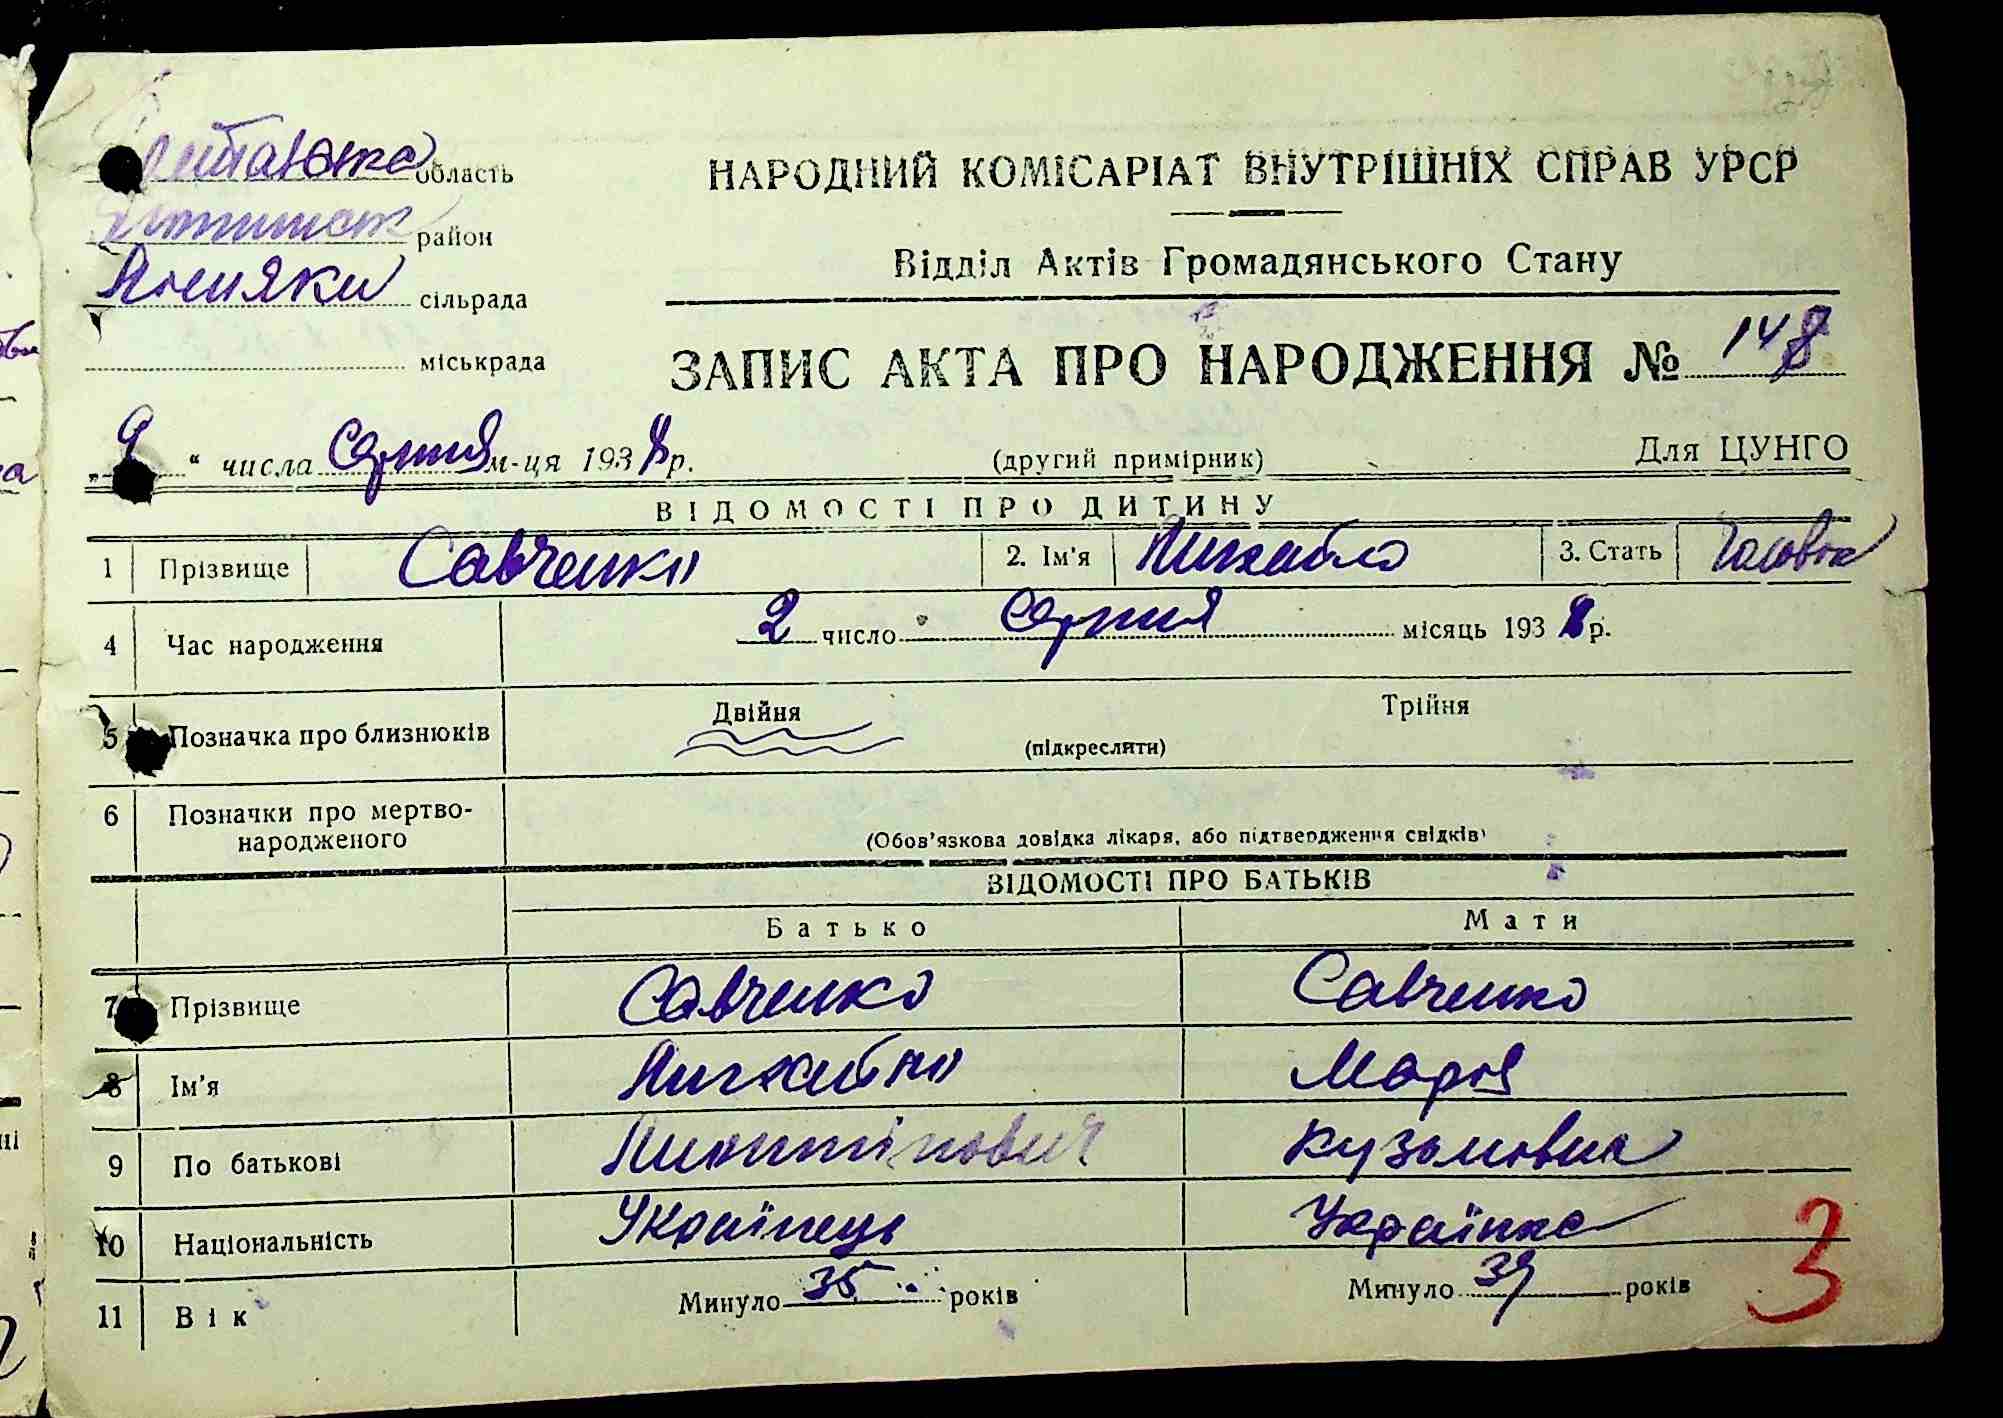 Полтавська область
район
сільрада
міськрада
НАРОДНИЙ КОМІСАРІАТ ВНУТРІШНІХ СПРАВ УРСР
Відділ Актів Громадянського Стану
ЗАПИС АКТА ПРО НАРОДЖЕННЯ № 148
„9“ числа Серпня м-ця 1938 р.
(другий примірник)
Для ЦУНГО
ВІДОМОСТІ ПРО ДИТИНУ
1 Прізвище Савченко 2. Ім'я Михайло 3. Стать Чоловіч
4 Час народження 2 число Серпня місяць 1938 р.
5 Позначка про близнюків Двійня (підкреслити) Трійня
6 Позначки про мертво-
народженого
(Обов'язкова довідка лікаря, або підтвердження свідків)
ВІДОМОСТІ ПРО БАТЬКІВ
Батько Мати
7 Прізвище Савченко Савченко
8 Ім'я Михайло Марія
9 По батькові Кузьмовна
10 Національність Українець Українка
11 Вік Минуло 35 років Минуло 39 років
3